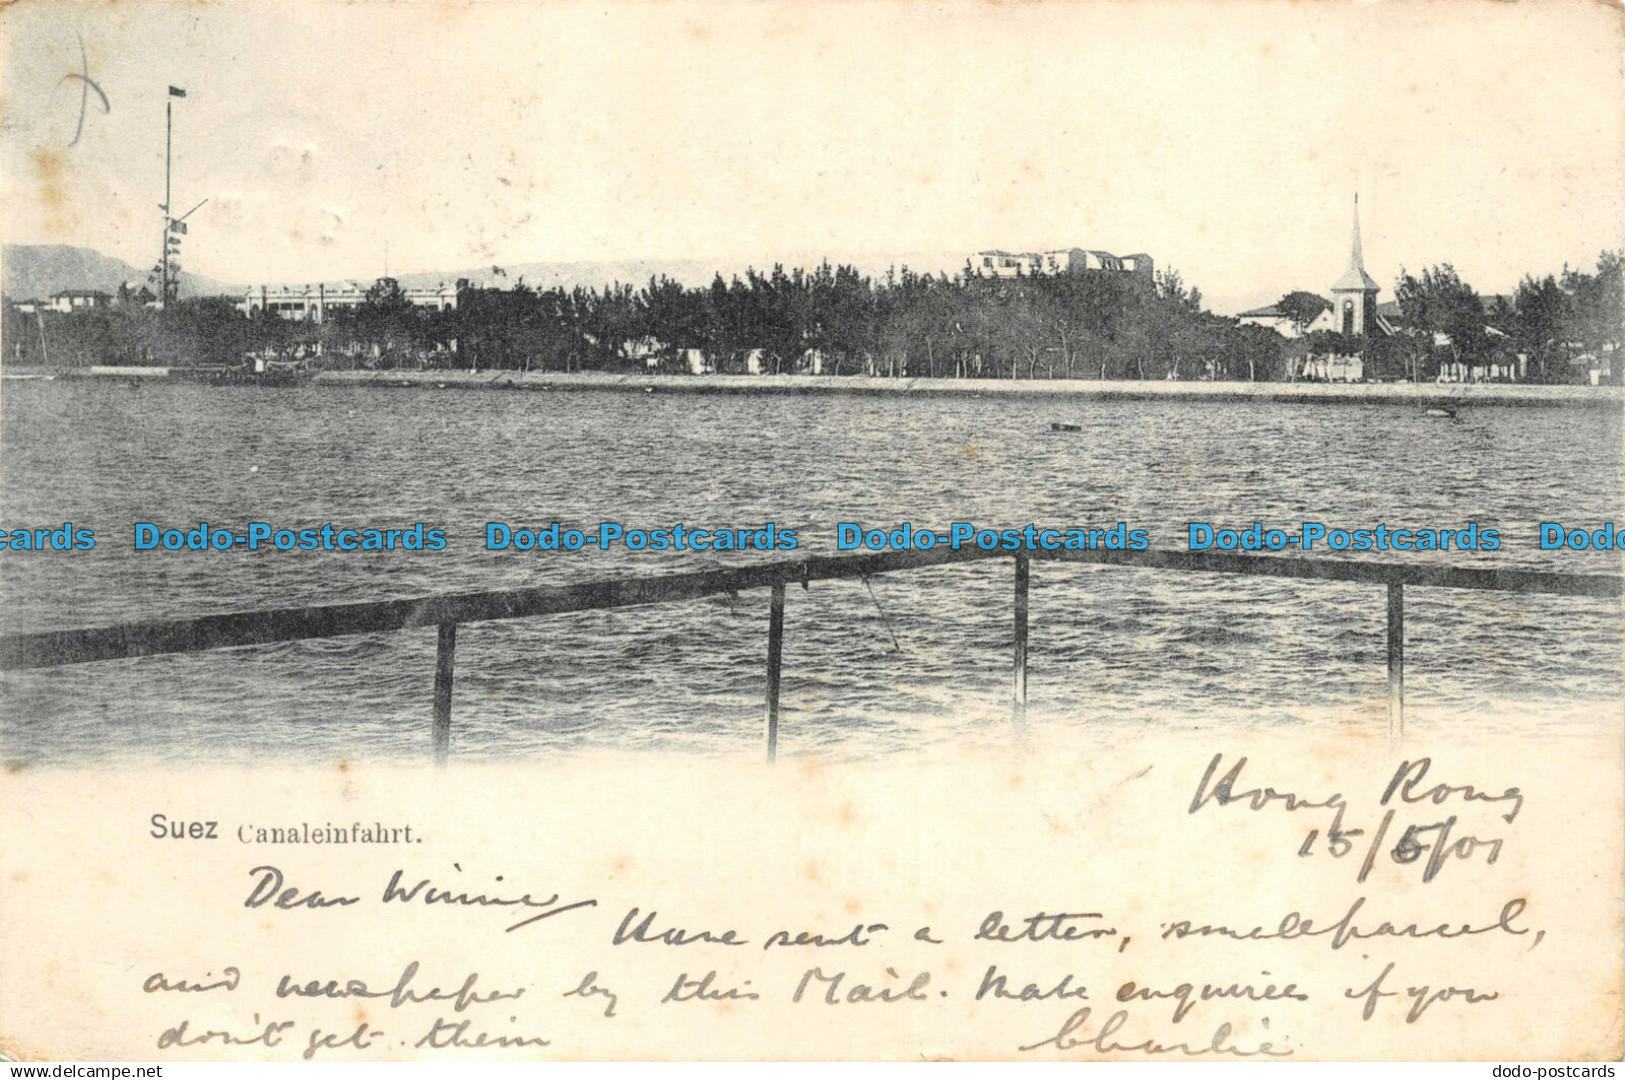 cards Dodo-Postcards Dodo-Postcards Dodo-Postcards Dodo-Postcards Dodo
Hong Kong
15/5/01
Suez Canaleinfahrt.
Dear Winnie
Have sent a letter, small parcel,
and newspaper by this Mail. Make enquiries if you
don't get them
Charlie
Dodo-Postcards, The Netherlands
dodo-postcards